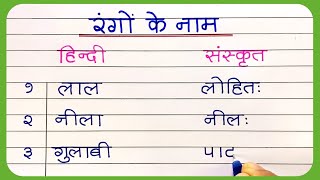 रंगों के नाम
हिन्दी संस्कृत
१ लाल लोहितः
२ नीला नीलः
३ गुलाबी पाट